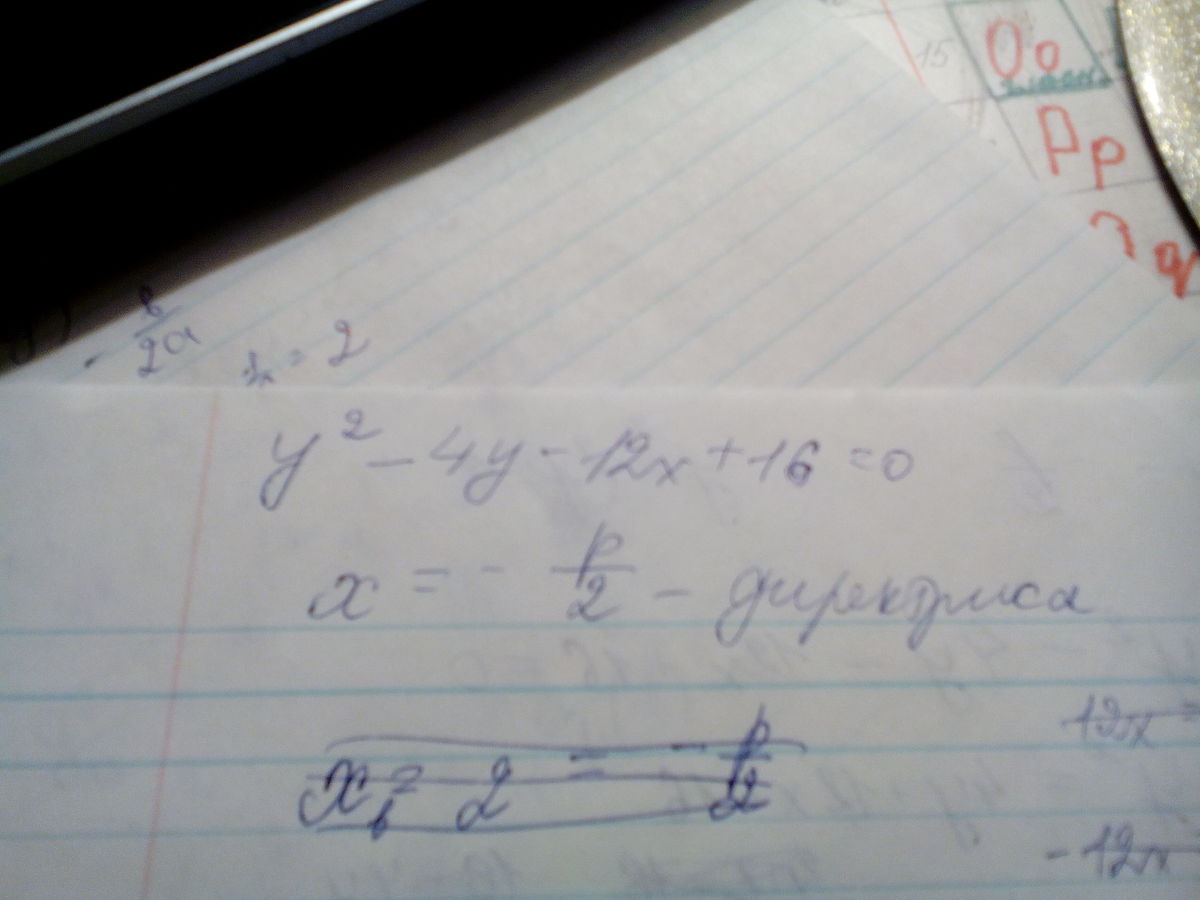 15 Oo
Pp
q
- b/2a
= 2
y² - 4y - 12x + 16 = 0
x = - p/2 - директриса
x = 2 = - p/2
12x =
- 12x